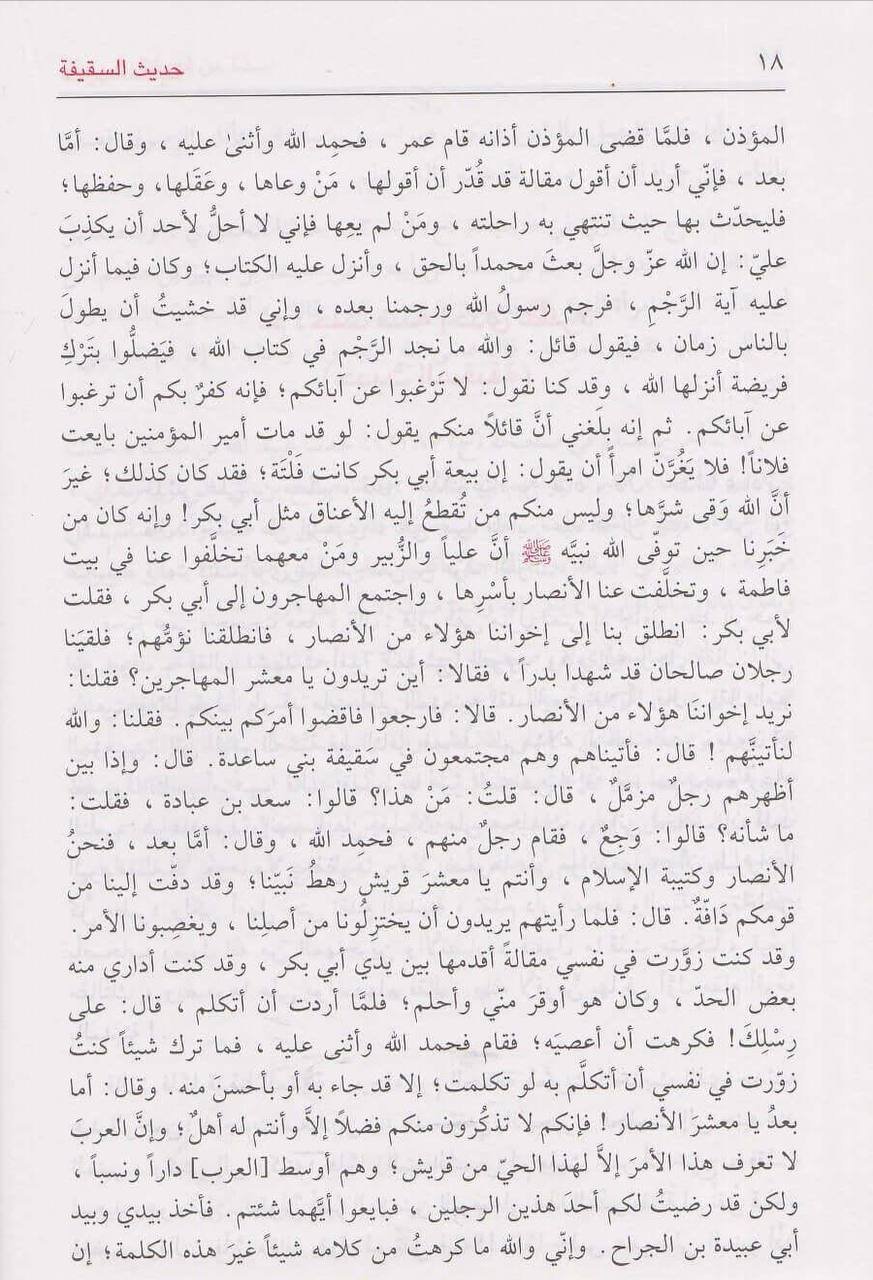 ١٨
حديث السقيفة
المؤذن ، فلمَّا قضى المؤذن أذانه قام عمر ، فحمِد الله وأثنىٰ عليه ، وقال: أمَّا
بعد ، فإنّي أريد أن أقول مقالة قد قُدّر أن أقولها ، مَنْ وعاها ، وعَقَلها، وحفظها؛
فليحدّث بها حيث تنتهي به راحلته ، ومَنْ لم يعِها فإني لا أحلُّ لأحد أن يكذِبَ
عليّ: إن الله عزّ وجلَّ بعثَ محمداً بالحق ، وأنزل عليه الكتاب؛ وكان فيما أنزل
عليه آية الرَّجْمِ ، فرجم رسولُ الله ورجمنا بعده ، وإني قد خشيتُ أن يطولَ
بالناس زمان ، فيقول قائل: والله ما نجد الرَّجْم في كتاب الله ، فيَضلُّوا بتَرْكِ
فريضة أنزلها الله ، وقد كنا نقول: لا تَرْغبوا عن آبائكم؛ فإنه كفرٌ بكم أن ترغبوا
عن آبائكم. ثم إنه بلَغني أنَّ قائلاً منكم يقول: لو قد مات أمير المؤمنين بايعت
فلاناً! فلا يَغُرَّنّ امرأً أن يقول: إن بيعة أبي بكر كانت فَلْتَة؛ فقد كان كذلك؛ غيرَ
أنَّ الله وَقى شرَّها؛ وليس منكم من تُقطعُ إليه الأعناق مثل أبي بكر! وإنه كان من
خَبَرِنا حين توفّى الله نبيَّه ﷺ أنَّ علياً والزُّبير ومَنْ معهما تخلَّفوا عنا في بيت
فاطمة ، وتخلَّفت عنا الأنصار بأسْرِها ، واجتمع المهاجرون إلى أبي بكر ، فقلت
لأبي بكر: انطلق بنا إلى إخواننا هؤلاء من الأنصار ، فانطلقنا نؤمُّهم؛ فلقيَنا
رجلان صالحان قد شهدا بدراً ، فقالا: أين تريدون يا معشر المهاجرين؟ فقلنا:
نريد إخواننَا هؤلاء من الأنصار. قالا: فارجعوا فاقضوا أمرَكم بينكم. فقلنا: والله
لنأتينَّهم ! قال: فأتيناهم وهم مجتمعون في سَقيفة بني ساعدة. قال: وإذا بين
أظهرهم رجلٌ مزمَّلٌ ، قال: قلتُ: مَنْ هذا؟ قالوا: سعد بن عبادة ، فقلت:
ما شأنه؟ قالوا: وَجِعٌ ، فقام رجلٌ منهم ، فحمِد الله ، وقال: أمَّا بعد ، فنحنُ
الأنصار وكتيبة الإسلام ، وأنتم يا معشرَ قريش رهطُ نَبيّنا؛ وقد دفّت إلينا من
قومكم دَافّةٌ. قال: فلما رأيتهم يريدون أن يختزِلُونا من أصلِنا ، ويغصِبونا الأمر.
وقد كنت زوَّرت في نفسي مقالةً أقدمها بين يدي أبي بكر ، وقد كنت أداري منه
بعض الحدّ ، وكان هو أوقرَ منّي وأحلم؛ فلمَّا أردت أن أتكلم ، قال: على
رِسْلِكَ! فكرهت أن أعصيَه؛ فقام فحمد الله وأثنى عليه ، فما ترك شيئاً كنتُ
زوّرت في نفسي أن أتكلَّم به لو تكلمت؛ إلا قد جاء به أو بأحسنَ منه. وقال: أما
بعدُ يا معشرَ الأنصار ! فإنكم لا تذكُرون منكم فضلاً إلاَّ وأنتم له أهلٌ؛ وإنَّ العربَ
لا تعرف هذا الأمرَ إلاَّ لهذا الحيّ من قريش؛ وهم أوسط [العرب] داراً ونسباً ،
ولكن قد رضيتُ لكم أحدَ هذين الرجلين ، فبايعوا أيَّهما شئتم. فأخذ بيدي وبيد
أبي عبيدة بن الجراح. وإنّي والله ما كرهتُ من كلامه شيئاً غيرَ هذه الكلمة؛ إن